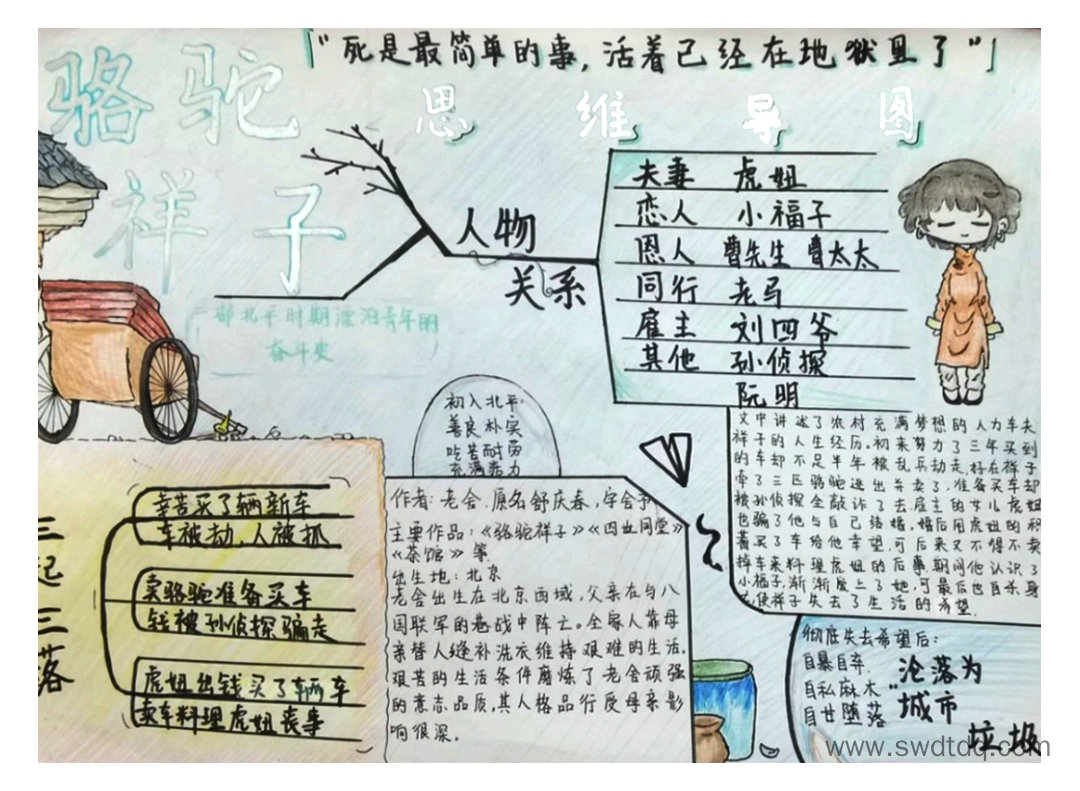 "死是最简单的事，活着已经在地狱里了"
骆驼
祥子
思维导图
人物
关系
夫妻 虎妞
恋人 小福子
恩人 曹先生 曹太太
同行 老马
雇主 刘四爷
其他 孙侦探
阮明
一部北平时期漂泊青年的
奋斗史
初入北平:
善良朴实
吃苦耐劳
充满活力
文中讲述了农村充满梦想的人力车夫
祥子的人生经历。初来努力了三年买到
的车却不足半年被乱兵劫走,好在祥子
牵了三匹骆驼逃出车卖了,准备买车却
被孙侦探全敲诈了去雇主的女儿虎妞
也骗了他与自己结婚,婚后用虎妞的积
蓄买了车给他幸望,可后来又不得不卖
掉车来料理虎妞的后事.期间他认识了
小福子,渐渐度上了她,可最后也自杀身
亡使祥子失去了生活的希望.
三起三落
辛苦买了辆新车
车被劫,人被抓
卖骆驼准备买车
钱被孙侦探骗走
虎妞出钱买了辆车
卖车料理虎妞丧事
作者:老舍.原名舒庆春,字舍予
主要作品:《骆驼祥子》《四世同堂》
《茶馆》等.
出生地:北京
老舍出生在北京西域,父亲在与八
国联军的巷战中阵亡。全家人靠母
亲替人缝补洗衣维持艰难的生活.
艰苦的生活条件磨炼了老舍顽强
的意志品质,其人格品行受母亲影
响很深。
彻底失去希望后:
自暴自弃.
自私麻木
自甘堕落
沦落为
"城市
垃圾
www.swdtdq.com